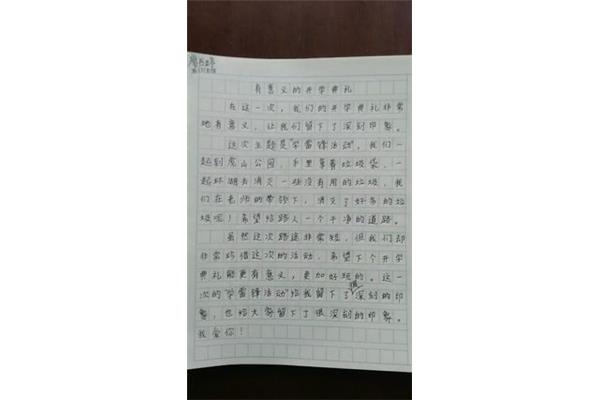 有意义的开学典礼
在这一次，我们的开学典礼非常
地有意义，让我们留下了深刻印象。
这次主题是"学雷锋活动"，我们一
起到虎山公园，手里拿着垃圾袋，一
起环湖去消灭一些没有用的垃圾，我
们在老师的带领下，消灭了好多的垃
圾呢！希望给路人一个干净的道路。
虽然这次路途非常短，但我们却
非常珍惜这次的活动，希望下个开学
典礼能更有意义，更加好玩的。这一
次的"学雷锋活动"给我留下了很深刻的印
象，也给大家留下了很深刻的印象。
我爱你！